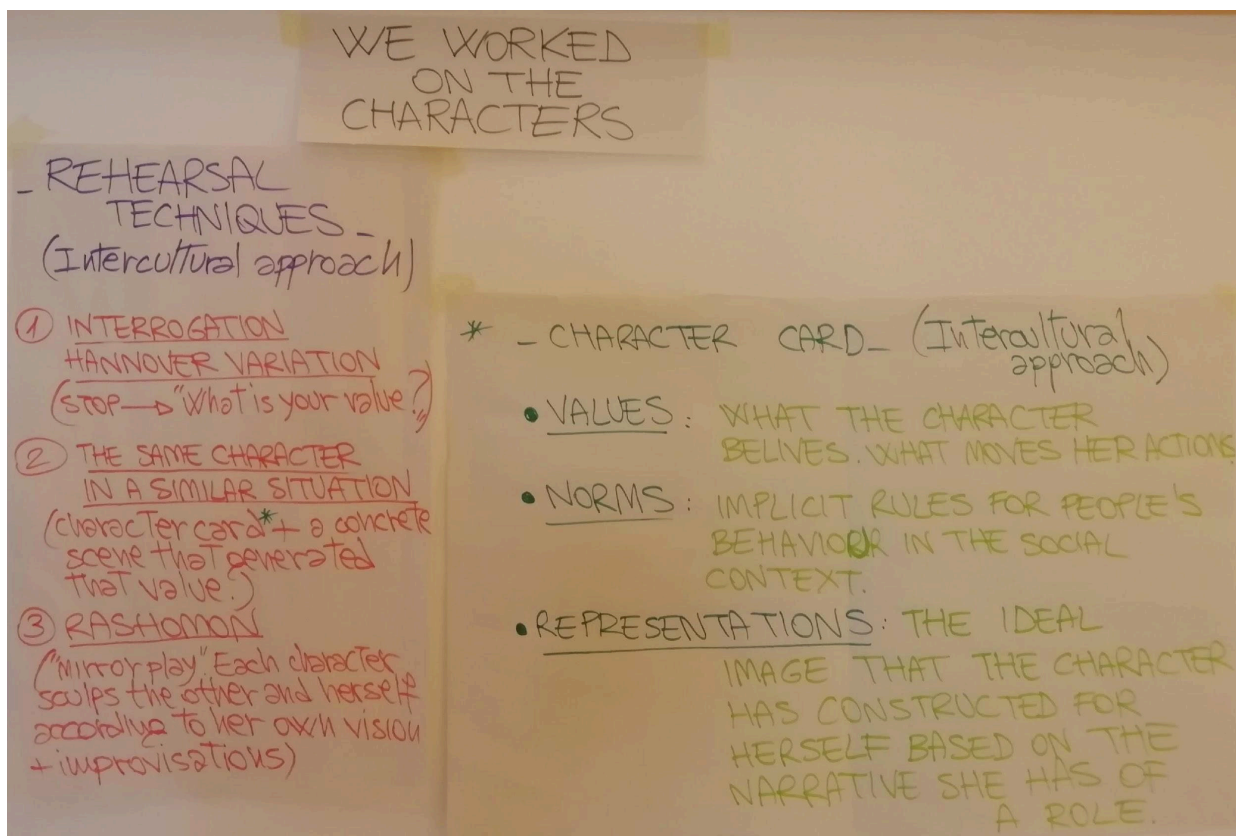 WE WORKED
ON THE
CHARACTERS
_ REHEARSAL
TECHNIQUES _
(Intercultural approach)
1 INTERROGATION
HANNOVER VARIATION
(STOP → "What is your value?")
2 THE SAME CHARACTER
IN A SIMILAR SITUATION
(character card* + a concrete
scene that generated
that value.)
3 RASHOMON
("mirror play" Each character
sculps the other and herself
according to her own vision
+ improvisations)
* _ CHARACTER CARD _ (Intercultural
approach)
• VALUES: WHAT THE CHARACTER
BELIVES. WHAT MOVES HER ACTIONS.
• NORMS: IMPLICIT RULES FOR PEOPLE'S
BEHAVIOUR IN THE SOCIAL
CONTEXT.
• REPRESENTATIONS: THE IDEAL
IMAGE THAT THE CHARACTER
HAS CONSTRUCTED FOR
HERSELF BASED ON THE
NARRATIVE SHE HAS OF
A ROLE.